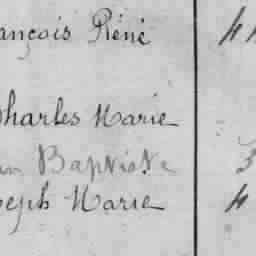 ançois Réné
Charles Marie
an Baptiste
seph Marie